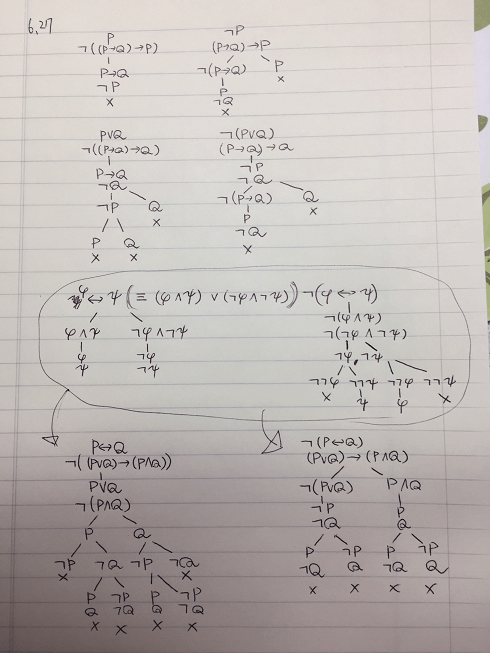 6.27
P ¬P
¬((P→Q)→P) (P→Q)→P
P→Q ¬(P→Q) P
¬P P ×
× ¬Q
×
P∨Q ¬(P∨Q)
¬((P→Q)→Q) (P→Q)→Q
P→Q ¬P
¬Q ¬Q
¬P Q ¬(P→Q) Q
× P ×
P Q ¬Q
× × ×
φ↔ψ (≡(φ∧ψ)∨(¬φ∧¬ψ)) ¬(φ↔ψ)
φ∧ψ ¬φ∧¬ψ ¬(φ∧ψ)
φ ¬φ ¬(¬φ∧¬ψ)
ψ ¬ψ ¬φ ¬ψ
¬¬φ ¬¬ψ ¬¬φ ¬¬ψ
× ψ φ ×
P↔Q ¬(P↔Q)
¬((P∨Q)→(P∧Q)) (P∨Q)→(P∧Q)
P∨Q ¬(P∨Q) P∧Q
¬(P∧Q) ¬P P
P Q ¬Q Q
¬P ¬Q ¬P ¬Q P ¬P P ¬P
× × ¬Q Q ¬Q Q
P ¬P P ¬P × × × ×
Q ¬Q Q ¬Q
× × × ×